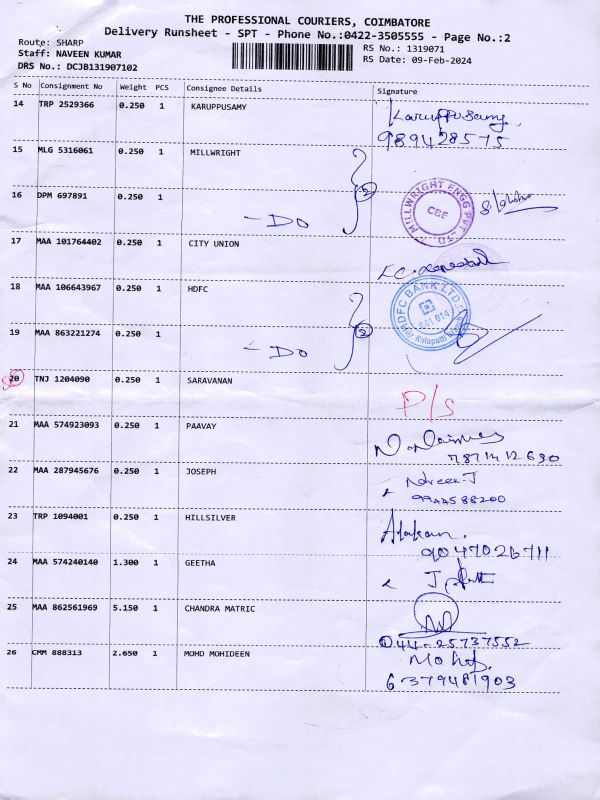 THE PROFESSIONAL COURIERS, COIMBATORE
Delivery Runsheet - SPT - Phone No.:0422-3505555 - Page No.:2
Route: SHARP RS No.: 1319071
Staff: NAVEEN KUMAR RS Date: 09-Feb-2024
DRS No.: DCJB131907102
S No Consignment No Weight PCS Consignee Details Signature
14 TRP 2529366 0.250 1 KARUPPUSAMY Karuppusamy
989428575
15 MLG 5316061 0.250 1 MILLWRIGHT
16 DPM 697891 0.250 1 - DO 2 MILLWRIGHT ENGG PVT. LTD. CBE
17 MAA 101764402 0.250 1 CITY UNION
18 MAA 106643967 0.250 1 HDFC
HDFC BANK LTD
19 MAA 863221274 0.250 1 - DO 2 Kalapatti
20 TNJ 1204090 0.250 1 SARAVANAN P/S
21 MAA 574923093 0.250 1 PAAVAY
7871412630
22 MAA 287945676 0.250 1 JOSEPH
9944588200
23 TRP 1094001 0.250 1 HILLSILVER
9047026711
24 MAA 574240140 1.300 1 GEETHA
25 MAA 862561969 5.150 1 CHANDRA MATRIC
044-25737552
26 CMM 888313 2.650 1 MOHD MOHIDEEN
6379481903